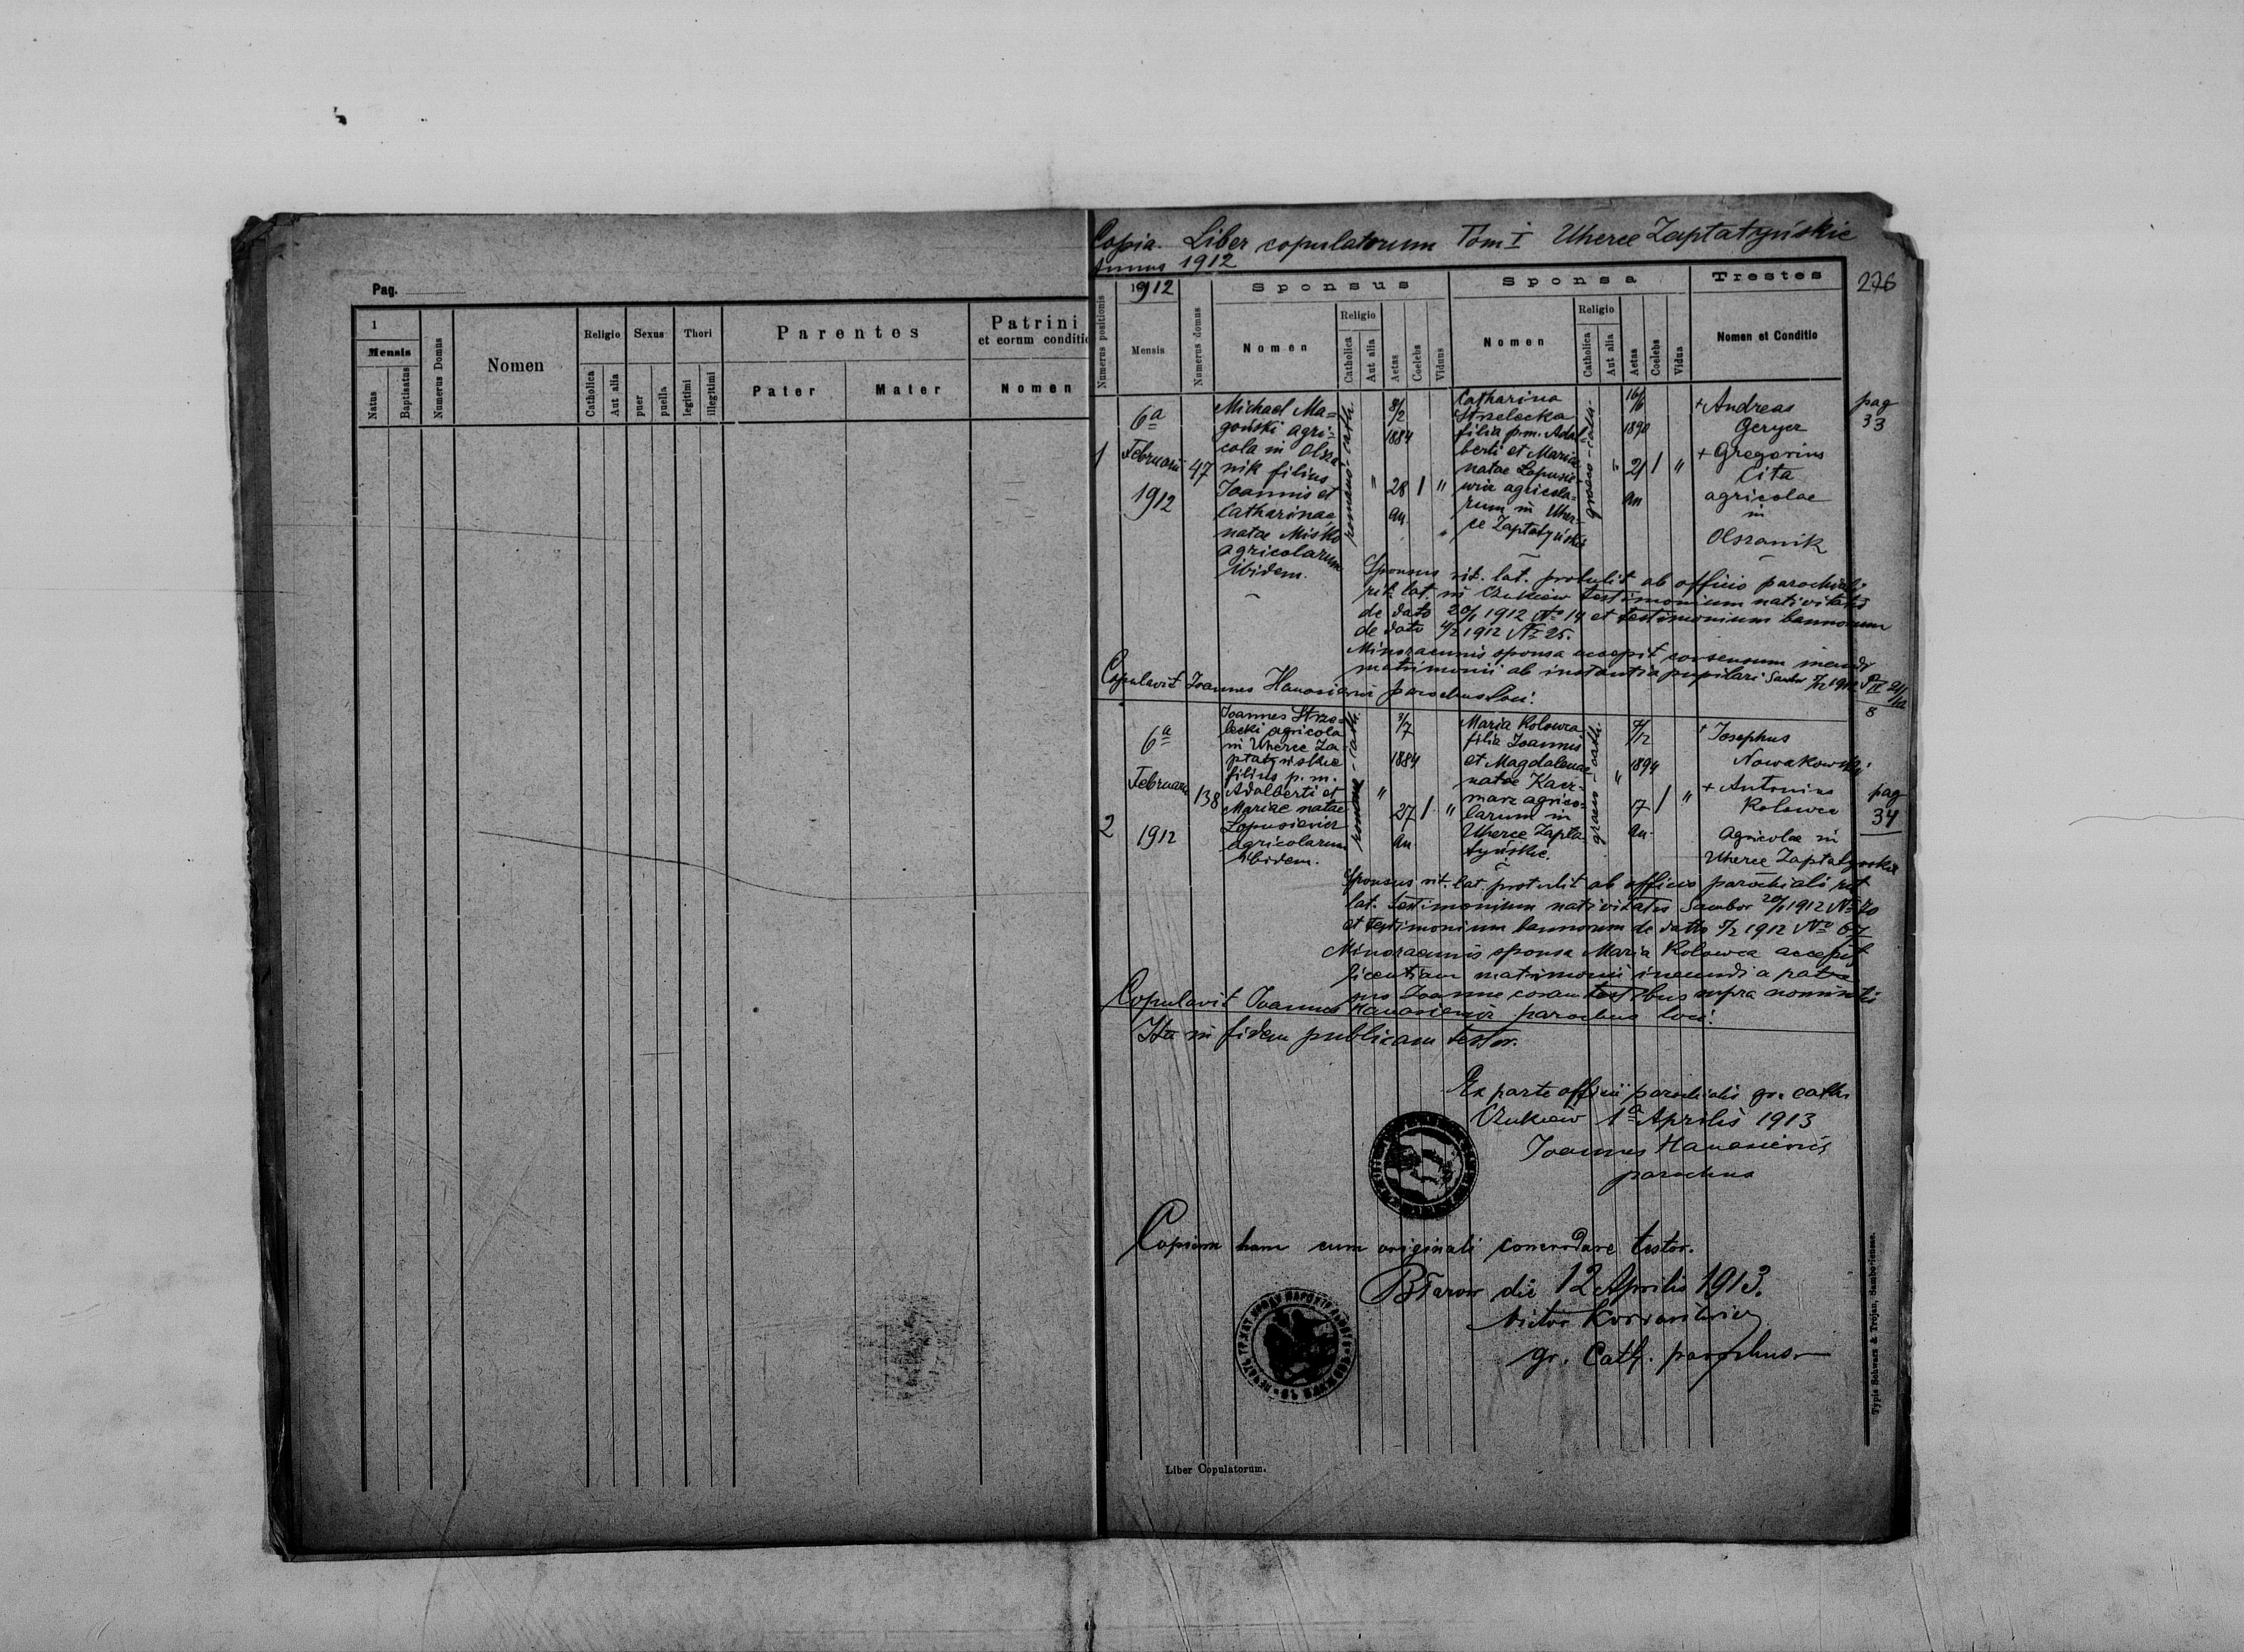 Pag.
1
Mensis
Natus
Baptisatus
Numerus Domus
Nomen
Religio
Catholica
Aut alia
Sexus
puer
puella
Thori
legitimi
illegitimi
Parentes
Pater
Mater
Patrini
et eorum conditio
Nomen
Copia. Liber copulatorum Tom I Uherce Zaptatyńskie
Annus 1912
276
Numerus positionis
1912
Mensis
Numerus domus
Sponsus
Nomen
Religio
Catholica
Aut alia
Aetas
Coelebs
Viduus
Sponsa
Nomen
Religio
Catholica
Aut alia
Aetas
Coelebs
Vidua
Trestes
Nomen et Conditio
1
6a
Februarii
1912
47
Michael Ma-
goński agri-
cola in Olsza-
nik filius
Joannis et
Catharinae
natae Miśko
agricolarum
ibidem.
romano-cath.
"
8/2
1884
28
an.
1
"
Catharina
Strzelecka
filia p.m. Adal-
berti et Mariae
natae Lopusie-
wicz agricola-
rum in Uher-
ce Zaptatyńskie
graeco-cath.
"
16/6
1890
21
an
1
"
+ Andreas
Geryez
+ Gregorius
Cita
agricolae
in
Olszanik
pag
33
Sponsus rit. lat. protulit ab officio parochiali
rit. lat. in Czukiew testimonium nativitatis
de dato 20/1 1912 No 14 et testimonium bannorum
de dato 4/2 1912 No 25.
Minoraennis sponsa accepit consensum ineundi
matrimonii ab instantia pupilari Sambor 1912
Copulavit Joannes Hanasiewicz parochus loci.
2
6a
Februarii
1912
138
Joannes Strze-
lecki agricola
in Uherce Za-
ptatyńskie
filius p. m.
Adalberti et
Mariae natae
Lopusiewicz
agricolarum
ibidem.
romano-cath.
"
3/7
1884
27
an
1
"
Maria Kolowca
filia Joannis
et Magdalenae
natae Kacz-
marz agrico-
larum in
Uherce Zapta-
tyńskie.
graeco-cath.
"
9/12
1894
17
an.
1
"
+ Josephus
Nowakowski
+ Antonius
Kolowca
Agricolae in
Uherce Zaptatynskie
pag
34
Sponsus rit. lat. protulit ab officio parochiali rit
lat. testimonium nativitatis Sambor 20/1 1912 No 20
et testimonium bannorum de datto 5/2 1912 No 67
Minoraennis sponsa Maria Kolowca accepit
licentiam matrimonii ineundi a patre
suo Joanne coram testibus supra nominatis
Copulavit Joannes Hanasiewicz parochus loci.
Ita in fidem publicam testor.
Ex parte officii parochialis gr. cath.
Czukiew 1a Aprilis 1913
Joannes Hanasiewicz
parochus
Copiam hanc cum originali concordare testor.
Błazow die 12 Aprilis 1913.
gr. Cath. parochus
Liber Copulatorum.
Typis Schwarz & Trojan, Samboriensis.